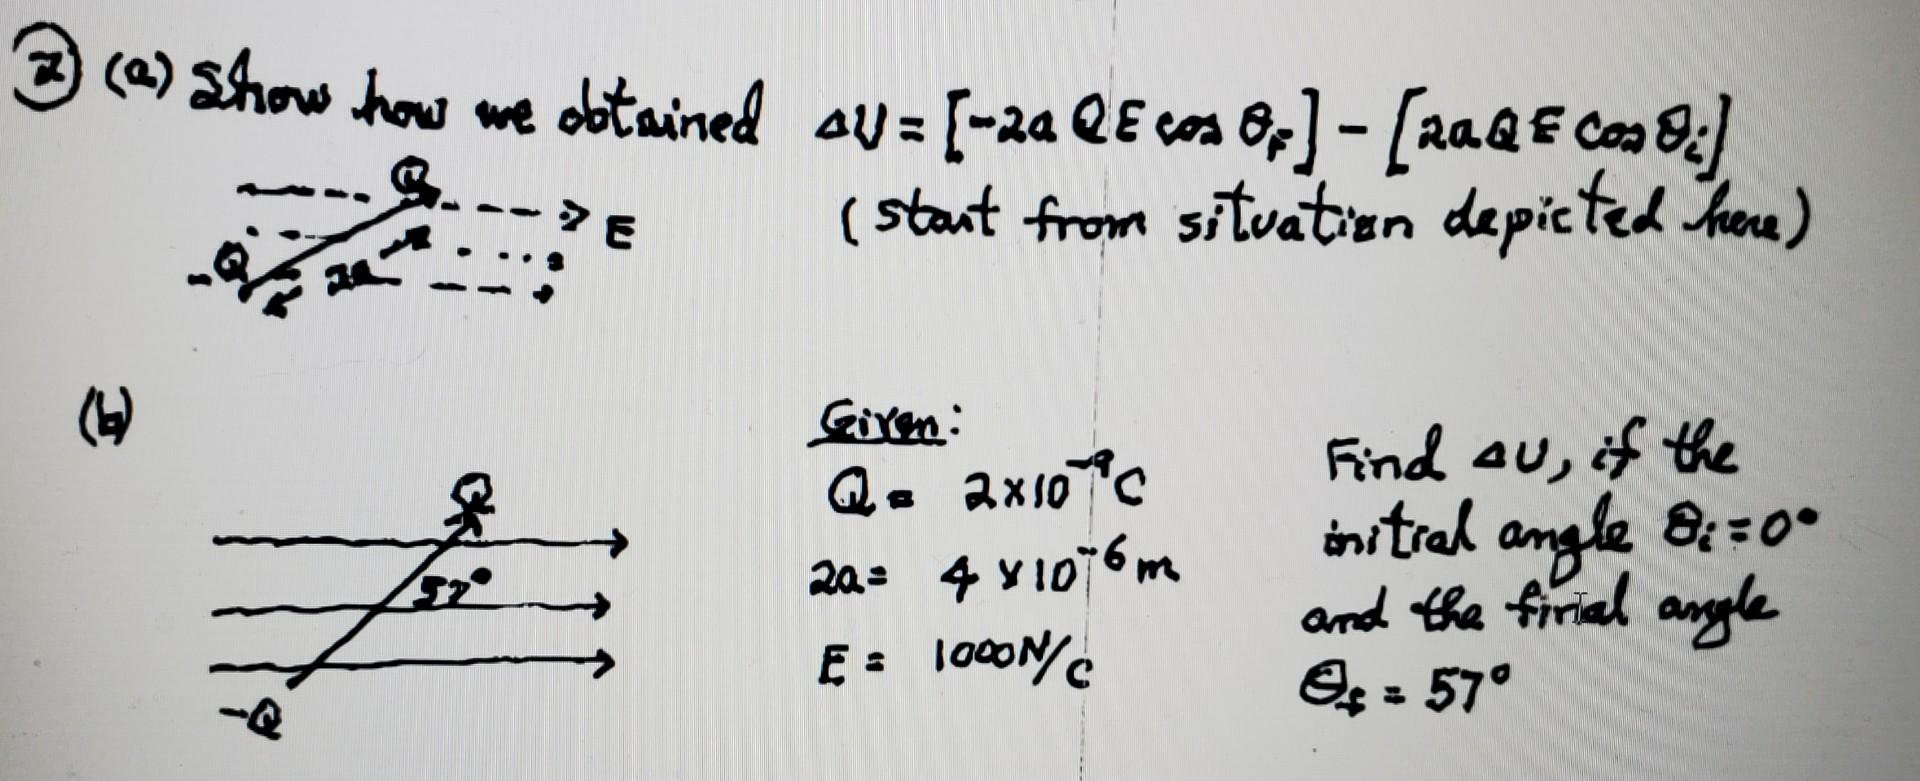 ② (a) Show how we obtained ΔU = [-2a QE cos θF] - [2aQE cos θi]
Q
E
(start from situation depicted here)
-Q
2a
(b)
Given:
Q = 2×10⁻⁹C
2a = 4×10⁻⁶m
E = 1000N/C
Find ΔU, if the
initial angle θi = 0°
and the final angle
θf = 57°
Q
57°
-Q